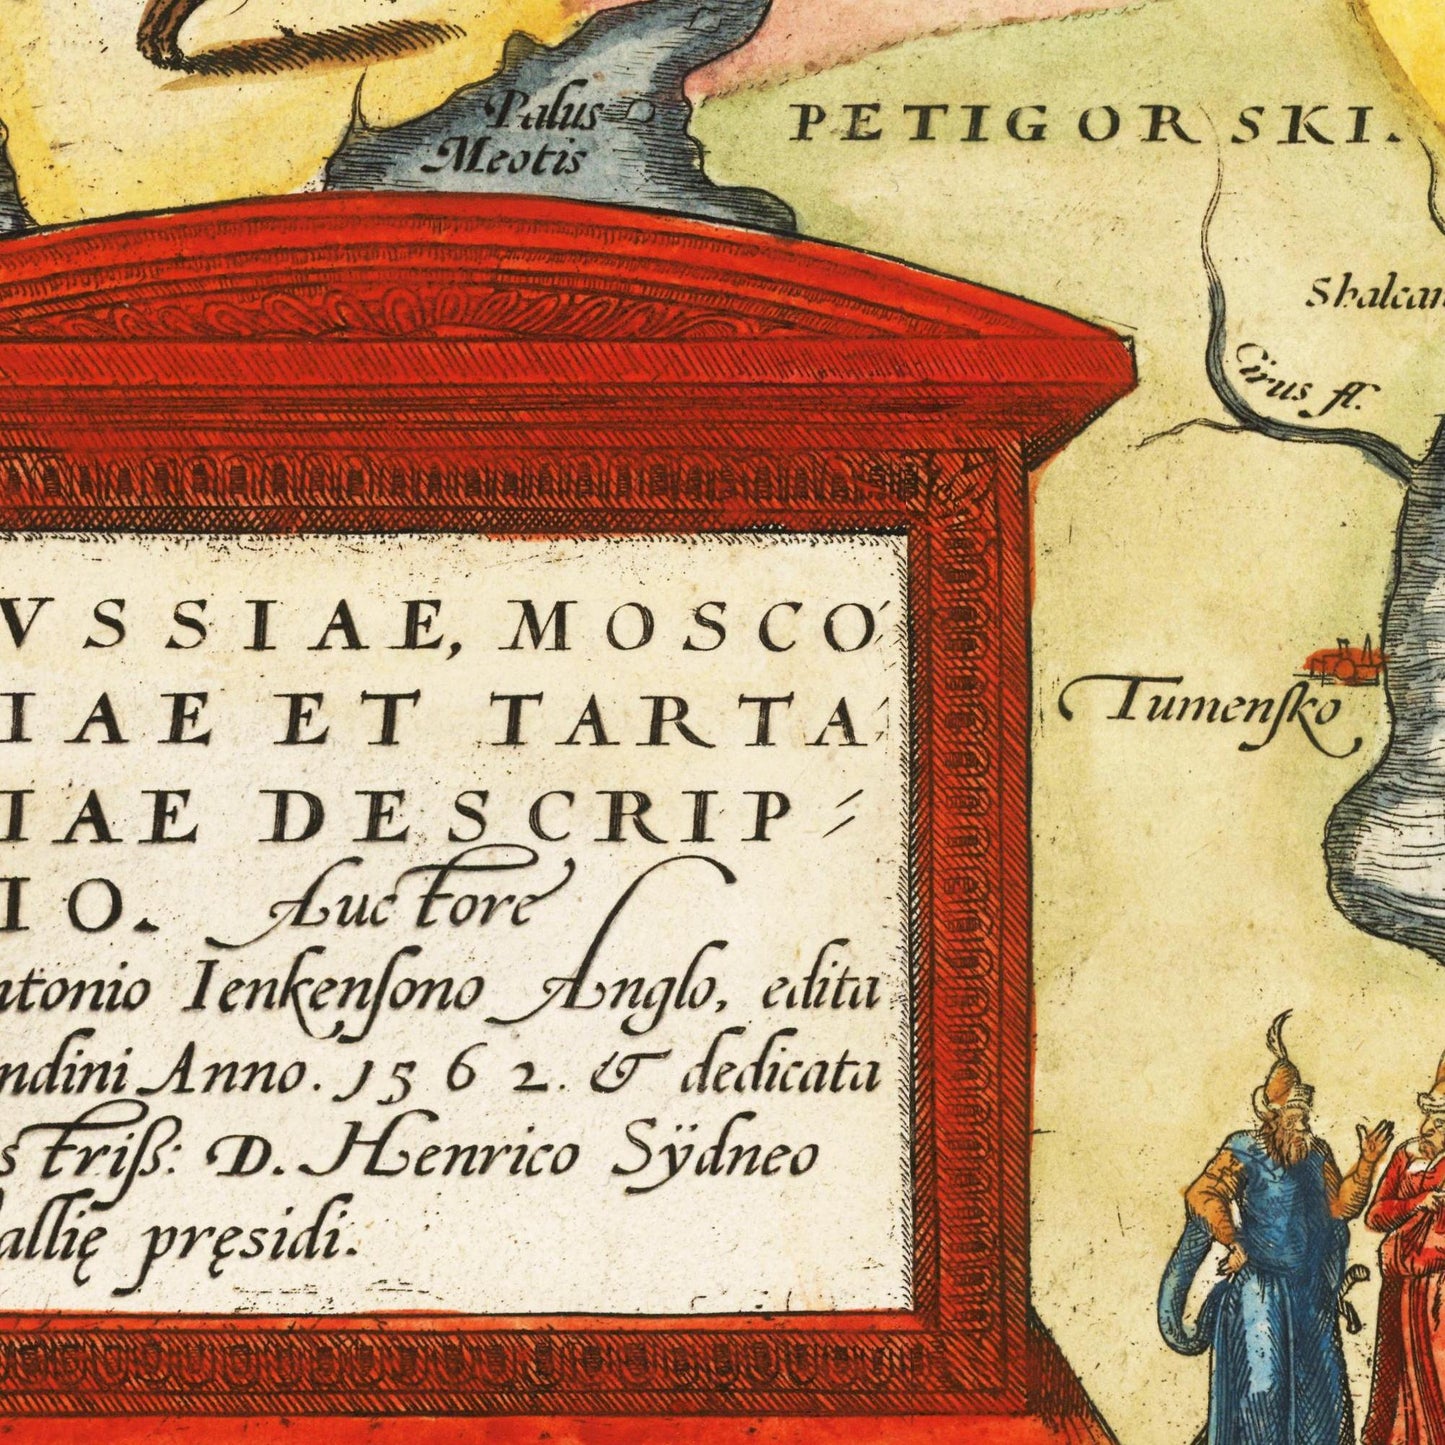 Palus
Meotis
PETIGORSKI.
Shalcan
Cirus fl.
Tumensko
VSSIAE, MOSCO
IAE ET TARTA
IAE DESCRIP
IO. Auctore
ntonio Ienkensono Anglo, edita
ndini Anno. 1562. & dedicata
striß: D. Henrico Sÿdneo
allię pręsidi.